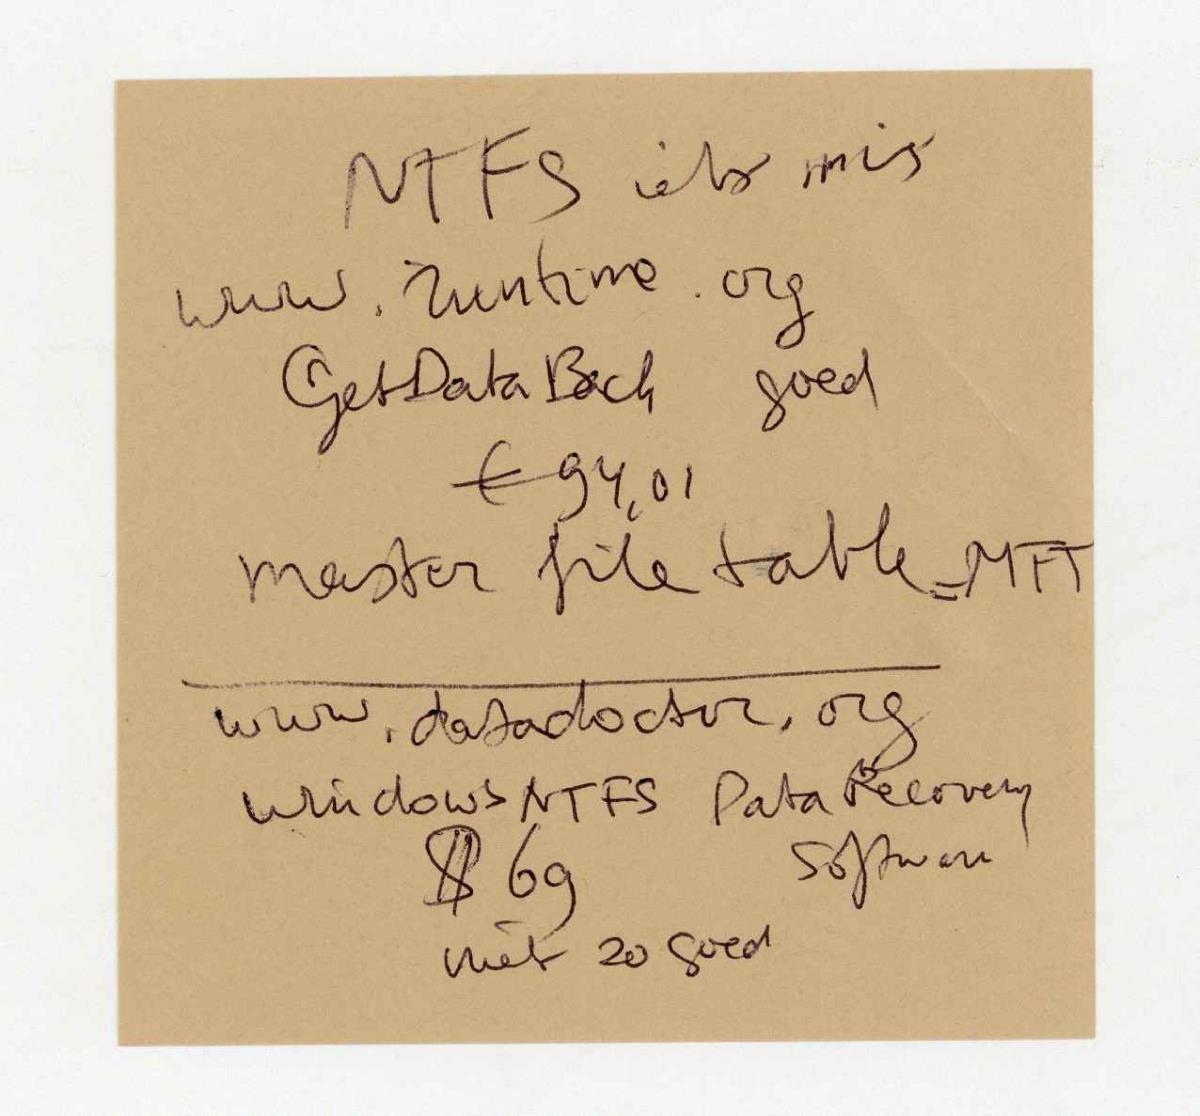 NTFS iets mis
www.runtime.org
GetDataBack goed
€ 94,01
master file table = MFT
www.datadoctor.org
windows NTFS Data Recovery
Software
$ 69
niet zo goed